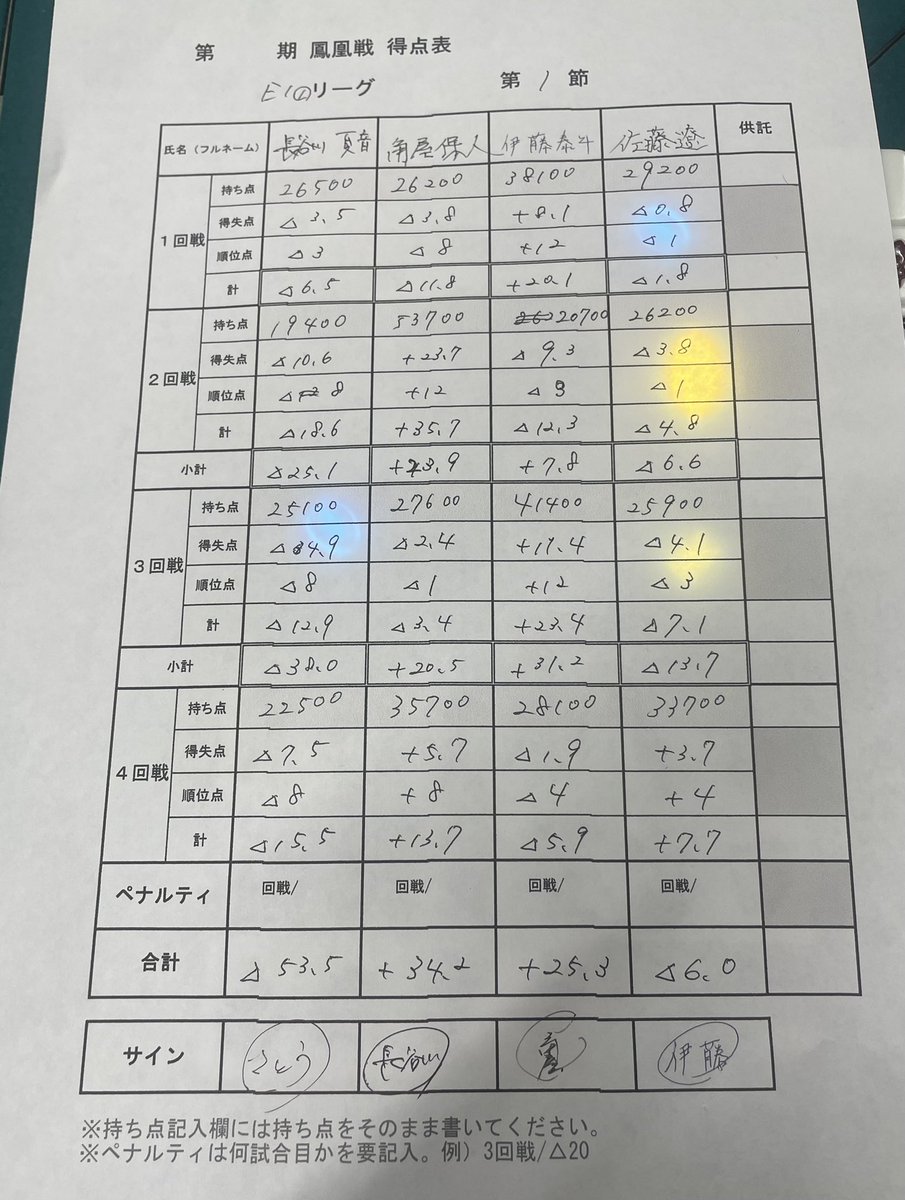 第 期 鳳凰戦 得点表
E1 リーグ 第 1 節
氏名（フルネーム） 長谷川 夏音 角屋保人 伊藤泰斗 佐藤遼 供託
1回戦
持ち点 26500 26200 38100 29200
得失点 △3.5 △3.8 +8.1 △0.8
順位点 △3 △8 +12 △1
計 △6.5 △11.8 +20.1 △1.8
2回戦
持ち点 19400 53700 20700 26200
得失点 △10.6 +23.7 △9.3 △3.8
順位点 △8 +12 △3 △1
計 △18.6 +35.7 △12.3 △4.8
小計 △25.1 +23.9 +7.8 △6.6
3回戦
持ち点 25100 27600 41400 25900
得失点 △4.9 △2.4 +11.4 △4.1
順位点 △8 △1 +12 △3
計 △12.9 △3.4 +23.4 △7.1
小計 △38.0 +20.5 +31.2 △13.7
4回戦
持ち点 22500 35700 28100 33700
得失点 △7.5 +5.7 △1.9 +3.7
順位点 △8 +8 △4 +4
計 △15.5 +13.7 △5.9 +7.7
ペナルティ 回戦/ 回戦/ 回戦/ 回戦/
合計 △53.5 +34.2 +25.3 △6.0
サイン さとう 長谷川 伊藤
※持ち点記入欄には持ち点をそのまま書いてください。
※ペナルティは何試合目かを要記入。例）3回戦/△20